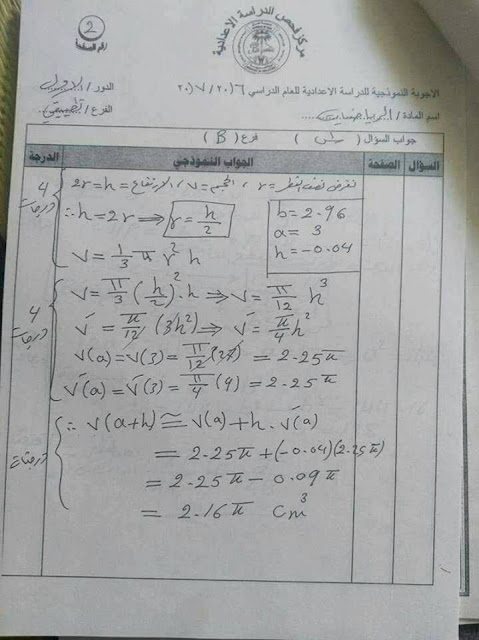 2
رقم الصفحة
مركز فحص الدراسة الاعدادية
الاجوبة النموذجية للدراسة الاعدادية للعام الدراسي ٢٠١٦ / ٢٠١٧
الدور / الاول
اسم المادة / الرياضيات
الفرع / تطبيقي
جواب السؤال ( ) فرع ( B )
السؤال الصفحة الجواب النموذجي الدرجة
نفرض نصف القطر = r ، الحجم = v ، الارتفاع = h = 2r
4 درجات
∴ h = 2r ⟹ r = h/2
b = 2.96
a = 3
h = -0.04
v = 1/3 π r² h
v = π/3 (h/2)² . h ⟹ v = π/12 h³
4 درجات
v́ = π/12 (3h²) ⟹ v́ = π/4 h²
v(a) = v(3) = π/12 (27) = 2.25π
v́(a) = v́(3) = π/4 (9) = 2.25π
∴ v(a+h) ≅ v(a) + h . v́(a)
درجتان
= 2.25π + (-0.04)(2.25π)
= 2.25π - 0.09π
= 2.16π cm³